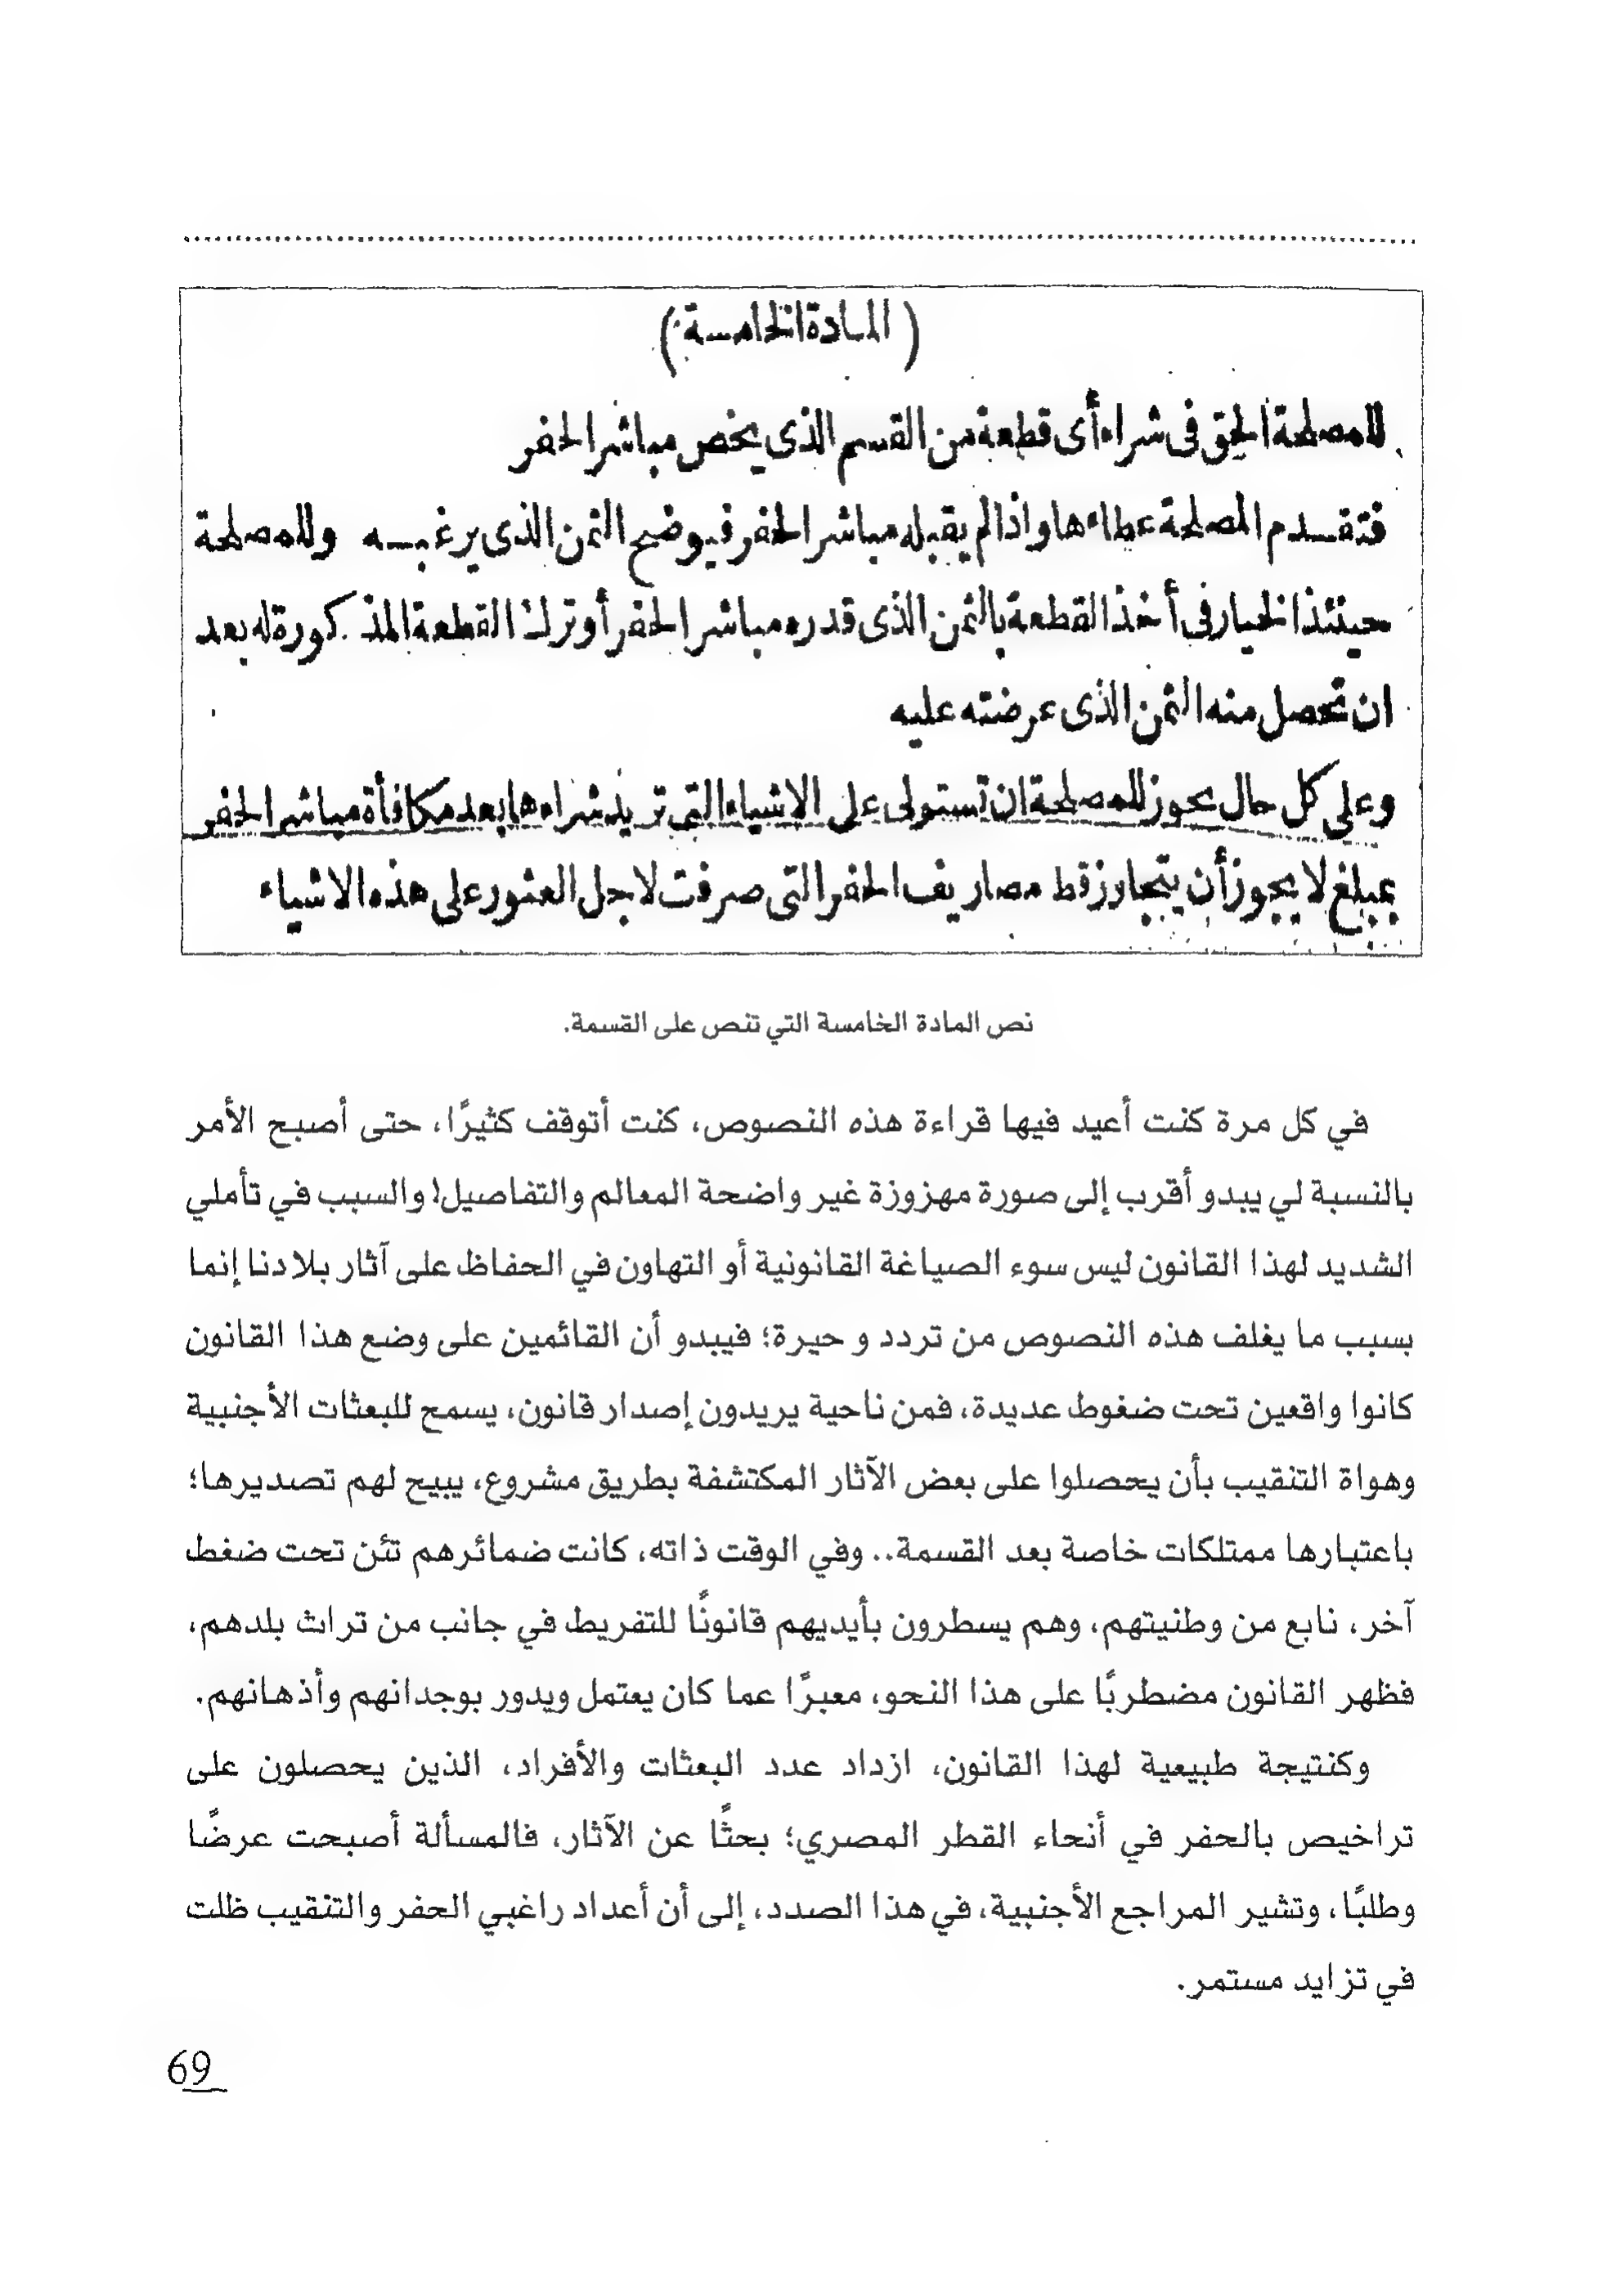 (المادة الخامسة)
للمصلحة الحق فى شراء أى قطعة من القسم الذى يخص مباشر الحفر
فتقدم المصلحة عطاءها واذا لم يقبله مباشر الحفر فيوضح الثمن الذى يرغبه وللمصلحة
حينئذ الخيار فى أخذ القطعة بالثمن الذى قدره مباشر الحفر أو ترك القطعة المذكورة له بعد
ان تحصل منه الثمن الذى عرضته عليه
وعلى كل حال يجوز للمصلحة ان تستولى على الاشياء التى تريد شراءها بعد مكافأة مباشر الحفر
بمبلغ لا يجوز أن يتجاوز قط مصاريف الحفر التى صرفت لاجل العثور على هذه الاشياء
نص المادة الخامسة التي تنص على القسمة.
في كل مرة كنت أعيد فيها قراءة هذه النصوص، كنت أتوقف كثيرًا، حتى أصبح الأمر
بالنسبة لي يبدو أقرب إلى صورة مهزوزة غير واضحة المعالم والتفاصيل! والسبب في تأملي
الشديد لهذا القانون ليس سوء الصياغة القانونية أو التهاون في الحفاظ على آثار بلادنا إنما
بسبب ما يغلف هذه النصوص من تردد و حيرة؛ فيبدو أن القائمين على وضع هذا القانون
كانوا واقعين تحت ضغوط عديدة، فمن ناحية يريدون إصدار قانون، يسمح للبعثات الأجنبية
وهواة التنقيب بأن يحصلوا على بعض الآثار المكتشفة بطريق مشروع، يبيح لهم تصديرها؛
باعتبارها ممتلكات خاصة بعد القسمة.. وفي الوقت ذاته، كانت ضمائرهم تئن تحت ضغط
آخر، نابع من وطنيتهم، وهم يسطرون بأيديهم قانونًا للتفريط في جانب من تراث بلدهم،
فظهر القانون مضطربًا على هذا النحو، معبرًا عما كان يعتمل ويدور بوجدانهم وأذهانهم.
وكنتيجة طبيعية لهذا القانون، ازداد عدد البعثات والأفراد، الذين يحصلون على
تراخيص بالحفر في أنحاء القطر المصري؛ بحثًا عن الآثار، فالمسألة أصبحت عرضًا
وطلبًا، وتشير المراجع الأجنبية، في هذا الصدد، إلى أن أعداد راغبي الحفر والتنقيب ظلت
في تزايد مستمر.
69